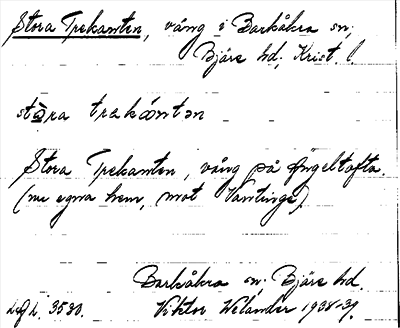 Stora Trekanten, vång i Barkåkra sn;
Bjäre hd; Krist. l.
stòra trekánten
Stora Trekanten, vång på Ängeltofta.
(nu egna hem, mot Vantinge)
Barkåkra sn. Bjäre hd.
3530. Viktor Welander 1938-39.